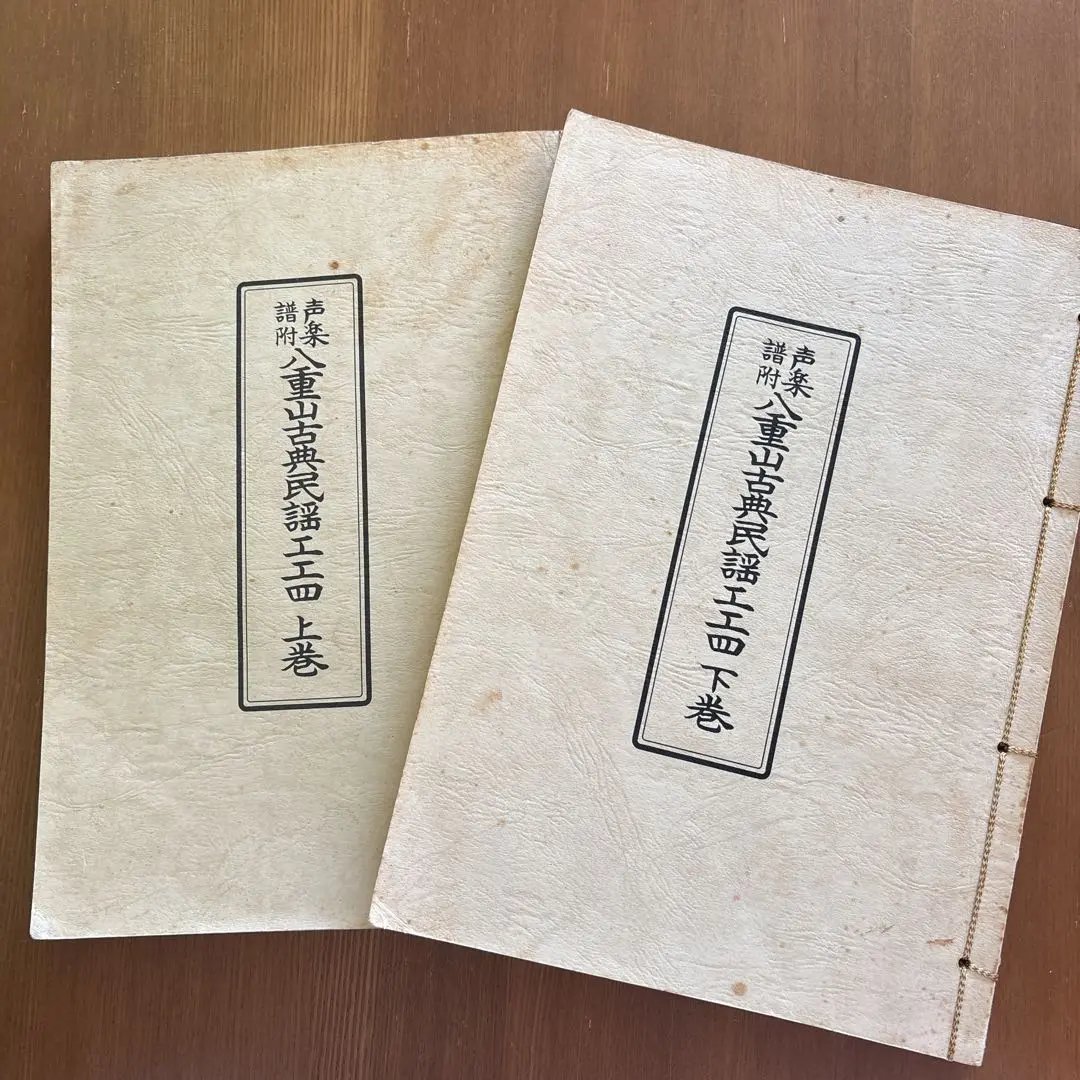 声楽
譜附
八重山古典民謡工工四 上巻
声楽
譜附
八重山古典民謡工工四 下巻